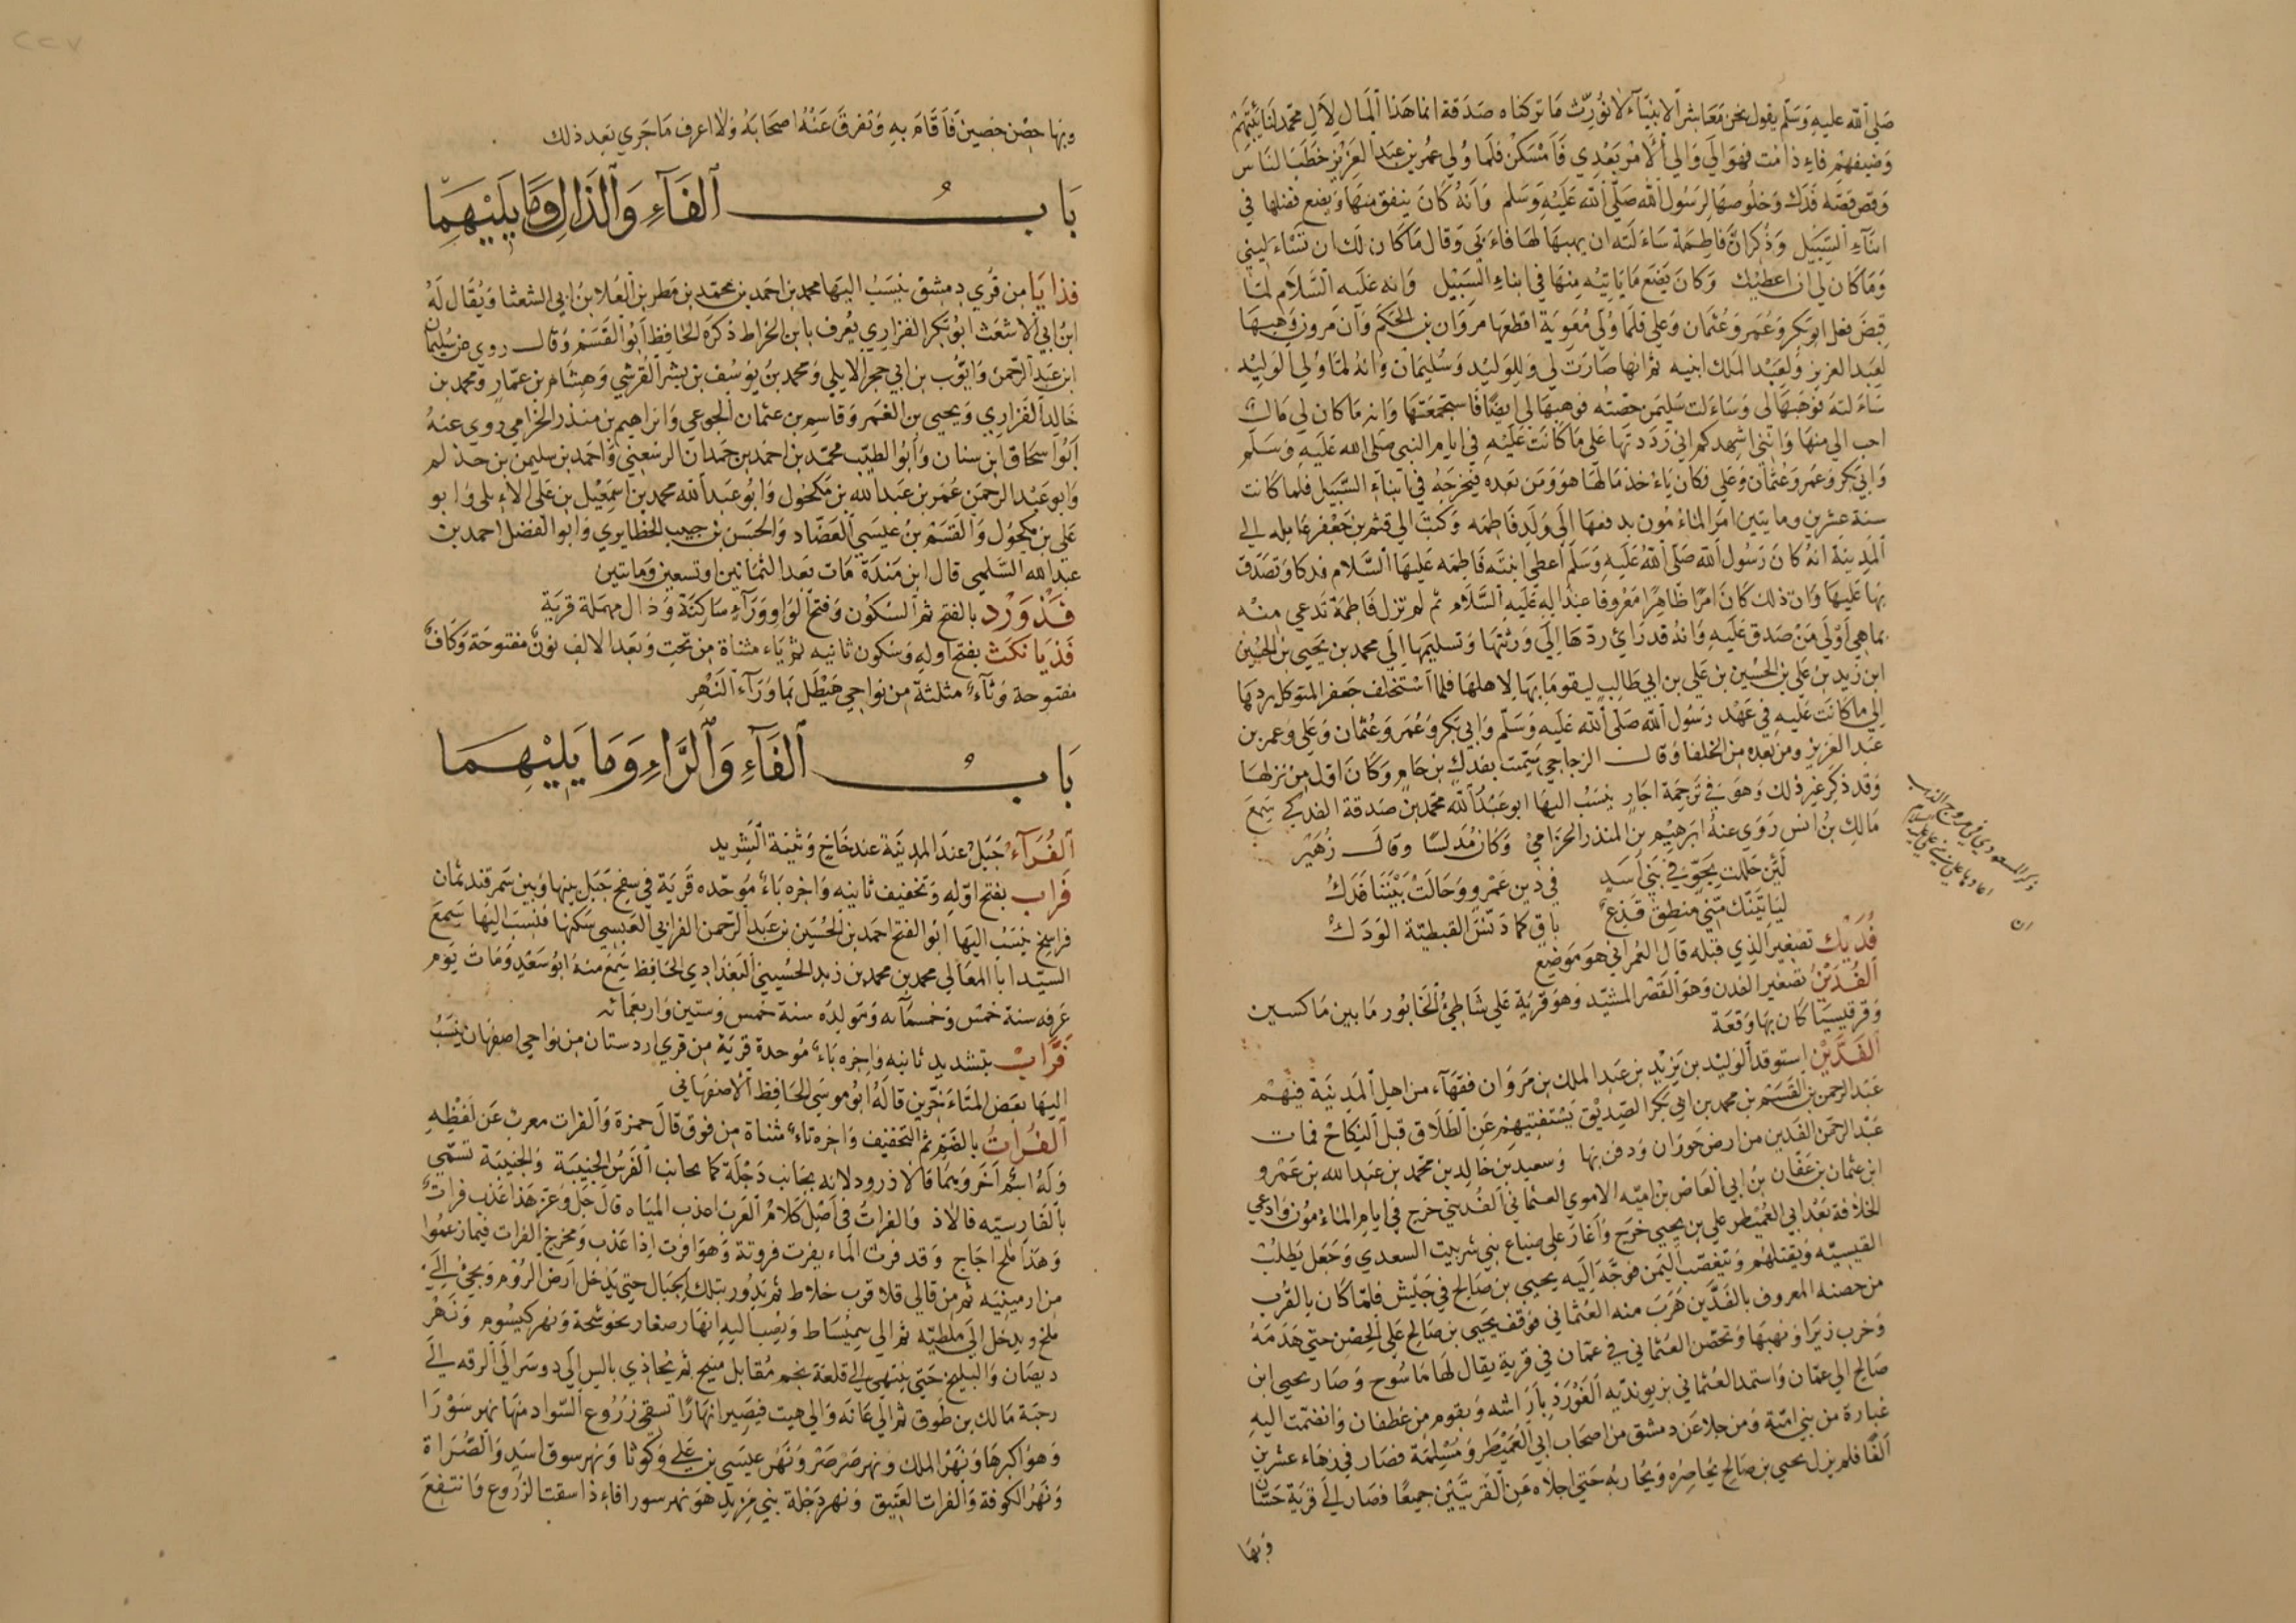 صلى الله عليه وسلم يقول نحن معاشر الانبياء لا نورث ما تركناه صدقة انما هذا المال لال محمد لنايبتهم
وضيفهم فاء ذا مت فهو الى والي الامر بعدي فامسكن فلما ولي عمر بن عبد العزيز خطب الناس
وقص قصه فدك وخلوصها لرسول الله صلى الله عليه وسلم وانه كان ينفق منها ويضع فضلها في
ابناء السبيل وذكر ان فاطمة ساءلته ان يهبها لها فاءبى وقال ما كان لك ان تسئاءليني
وما كان لي ان اعطيك وكان يضع ما ياتيه منها في ابناء السبيل وانه عليه السلام لما
قبض فعل ابو بكر وعمر وعثمان وعلي فلما ولي معوية اقطعها مروان بن الحكم وان مروان وهبها
لعبد العزيز ولعبد الملك ابنيه ثم انها صارت لي وللوليد وسليمان وانه لما ولي الوليد
ساءلته فوهبها لي وساءلت سليمن حصته فوهبها لي ايضا فاستجمعتها وانه ما كان لي مال
احب الي منها وانني اشهدكم اني رددتها على ما كانت عليه في ايام النبي صلى الله عليه وسلم
وابي بكر وعمر وعثمان وعلي فكان ياءخذ مالها هو ومن بعده فيخرجه في ابناء السبيل فلما كانت
سنة عشرين ومايتين امر الماءمون بدفعها الى ولد فاطمه وكتب الى قثم بن جعفر عامله الى
المدينة انه كان رسول الله صلى الله عليه وسلم اعطى ابنته فاطمه عليها السلام فدكا وتصدق
بها عليها وان ذلك كان امرا ظاهرا معروفا عند اله عليه السلام ثم لم تزل فاطمة تدعي منه
بما هي اولى من صدق عليه وانه قد راي ردها الى ورثتها وتسليمها الى محمد بن يحيى بن الحسين
ابن زيد بن علي بن الحسين بن علي بن ابي طالب ليقوما بها لاهلها فلما استخلف جعفر المتوكل ردها
الى ما كانت عليه في عهد رسول الله صلى الله عليه وسلم وابي بكر وعمر وعثمان وعلي وعمر بن
عبد العزيز ومن بعده من الخلفا وقال الزجاجي سميت بفدك بن حام وكان اول من نزلها
وقد ذكر غير ذلك وهو في ترجمة اجار ينسب اليها ابو عبد الله محمد بن صدقة الفدكي سمع
مالك بن انس روى عنه ابرهيم بن المنذر الحزامي وكان مدلسا وقال زهير
لئن حللت بجو في بني اسد في دين عمرو وحالت بيننا فدك
لياتينك مني منطق قذع باق كما دنس القبطية الودك
فديك تصغير الذي قبله قال العمراني هو موضع
الفدين تصغير الفدن وهو القصر المشيد وهو قرية على شاطئ الخابور ما بين ماكسين
وقرقيسيا كان بها وقعة
الفدين استوقد الوليد بن يزيد بن عبد الملك بن مروان فقهاء من اهل المدينة فيهم
عبد الرحمن بن القسم بن محمد بن ابي بكر الصديق يستفتيهم عن الطلاق قبل النكاح فمات
عبد الرحمن الفدين من ارض حوران ودفن بها وسعيد بن خالد بن محمد بن عبد الله بن عمرو
ابن عثمان بن عفان بن ابي العاص بن اميه الاموي العثماني الفديني خرج في ايام الماءمون وادعى
الخلافة بعد ابي العميطر علي بن يحيى خرج واغار على ضياع بني شرنبت السعدي وجعل يطلب
القيسيه ويقتلهم ويتعصب اليمن فوجه اليه يحيى بن صالح في جيش فلما كان بالقرب
من حصنه المعروف بالفدين هرب منه العثماني فوقف يحيى بن صالح على الحصن حتى هدمه
وخرب زيزا ونهبها وتحصن العثماني في عمان في قرية يقال لها ماسوح وصار يحيى ابن
صالح الى عمان واستمد العثماني بزيونديه الغور وباراشه وبقوم من غطفان وانضمت اليه
غبارة من بني امية ومن جلا عن دمشق من اصحاب ابي العميطر ومسلمة فصار في زهاء عشرين
الفا فلم يزل يحيى بن صالح يحاصره ويحاربه حتى اجلاه عن القريتين جميعا فصار الى قرية حسان
وبها
وبها حصن حصين فاقام به وتفرق عنه اصحابه ولا اعرف ما جرى بعد ذلك
باب الفاء والذال وما يليهما
فذايا من قرى دمشق ينسب اليها محمد بن احمد بن محمد بن مطر بن العلا بن ابي الشعثا ويقال له
ابن ابي الاشعث ابو بكر الفزاري يعرف بابن الخراط ذكره الحافظ ابو القسم وقال روى عن سليمان
ابن عبد الرحمن وايوب بن ابي حجر الايلي ومحمد بن يوسف بن بشر القرشي وهشام بن عمار ومحمد بن
خالد الفزاري ويحيى بن الغمر وقاسم بن عثمان الجوعي وابراهيم بن منذر الحزامي روى عنه
ابو اسحاق ابن سنان وابو الطيب محمد بن احمد بن حمدان الرسعني واحمد بن سليمن بن حذلم
وابو عبد الرحمن عمر بن عبد الله بن مكحول وابو عبد الله محمد بن اسمعيل بن علي الاءيلي وابو
علي بن مكحول والقسم بن عيسى العصاد والحسن بن حبيب الحظايري وابو الفضل احمد بن
عبد الله السلمي قال ابن مندة مات بعد الثمانين او تسعين ومايتين
فذورد بالفتح ثم السكون وفتح الواو وراء ساكنة وذال مهملة قرية
فذيانكث بفتح اوله وسكون ثانيه ثم ياء مثناة من تحت وبعد الالف نون مفتوحة وكاف
مفتوحة وثاء مثلثة من نواحي هيطل بما وراء النهر
باب الفاء والراء وما يليهما
الفراء جبل عند المدينة عند خاخ وثنية الشريد
فراب بفتح اوله وتخفيف ثانيه واخره باء موحده قرية في سفح جبل بينها وبين سمرقند ثمان
فراسخ ينسب اليها ابو الفتح احمد بن الحسين بن عبد الرحمن الفرابي العبسي سكنها فنسب اليها سمع
السيد ابا المعالي محمد بن محمد بن زيد الحسيني البغدادي الحافظ سمع منه ابو سعيد ومات يوم
عرفه سنة خمس وخمسمائه ومولده سنة خمس وستين واربعمائه
فراب بتشديد ثانيه واخره باء موحدة قرية من قرى اردستان من نواحي اصفهان ينسب
اليها بعض المتاءخرين قاله ابو موسى الحافظ الاصفهاني
الفرات بالضم ثم التخفيف واخره تاء مثناة من فوق قال حمزة والفرات معرب عن لفظه
وله اسم اخر وربما قالاذ رود لانه بجانب دجلة كما بجانب الفرس الجنيبة والجنيبة تسمى
بالفارسيه فالاذ والفرات في اصل كلام العرب اعذب المياه قال جل وعز هذا عذب فرات
وهذا ملح اجاج وقد فرت الماء يفرت فروتة وهو افرت اذا عذب ومخرج الفرات فيما زعموا
من ارمينيه ثم من قالي قلا قرب خلاط ثم يدور بتلك الجبال حتى يدخل ارض الروم ويجئ الى
ملخ ويدخل الى ملطيه ثم الى سميساط ويصب اليه انهار صغار نحو شجة ونهر كيسوم ونهر
ديصان والبليخ حتى ينتهي الى قلعة نجم مقابل منبج ثم يحاذي بالس الى دوسر الى الرقه الى
رحبة مالك بن طوق ثم الى عانه والى هيت فيصير انهارا تسقي زروع السواد منها نهر سورا
وهو اكبرها ونهر الملك ونهر صرصر ونهر عيسى بن علي وكوثا ونهر سوق اسد والصراة
ونهر الكوفة والفرات العتيق ونهر دجلة بني مزيد هو نهر سورا فاءذا سقت الزروع وانتفع